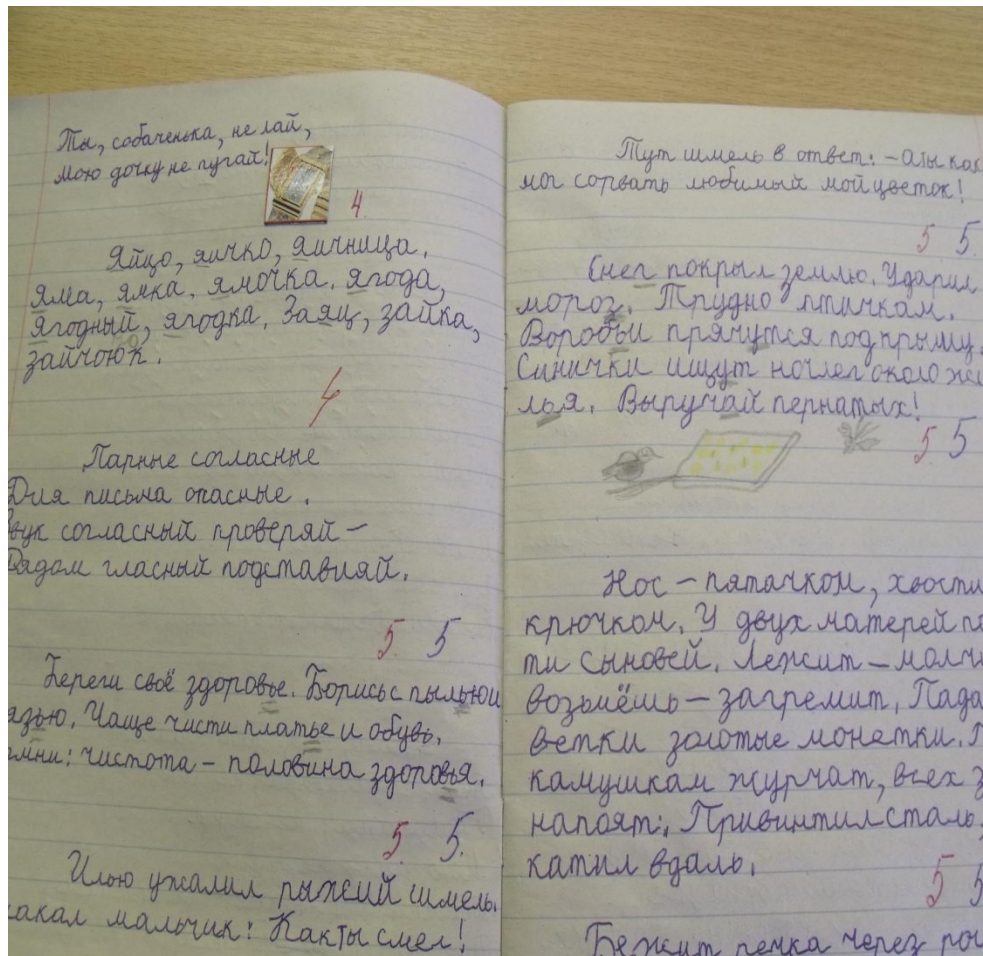 Ты, собаченька, не лай,
мою дочку не пугай!
4.
Яйцо, яичко, яичница.
Яма, ямка, ямочка. Ягода,
ягодный, ягодка. Заяц, зайка,
зайчоюк.
4
Парные согласные
Для письма опасные.
Звук согласный проверяй –
Рядом гласный подставляй.
5. 5
Береги своё здоровье. Борись с пылью и
язью. Чаще чисти платье и обувь.
мни: чистота – половина здоровья.
5. 5.
Илью ужалил рыжий шмель.
акал мальчик: Как ты смел!
Тут шмель в ответ: – А ты как
мог сорвать любимый мой цветок!
5 5.
Снег покрыл землю. Ударил
мороз. Трудно птичкам.
Воробьи прячутся под крышу.
Синички ищут ночлег около жи
лья. Выручай пернатых!
5. 5
Нос – пятачком, хвости
крючком. У двух матерей по
ти сыновей. Лежит – молчи
возьмёшь – загремит. Пада
ветки золотые монетки. П
камушкам журчат, всех з
напоят. Привинтил сталь,
катил вдаль.
5 5
Бежит речка через ро